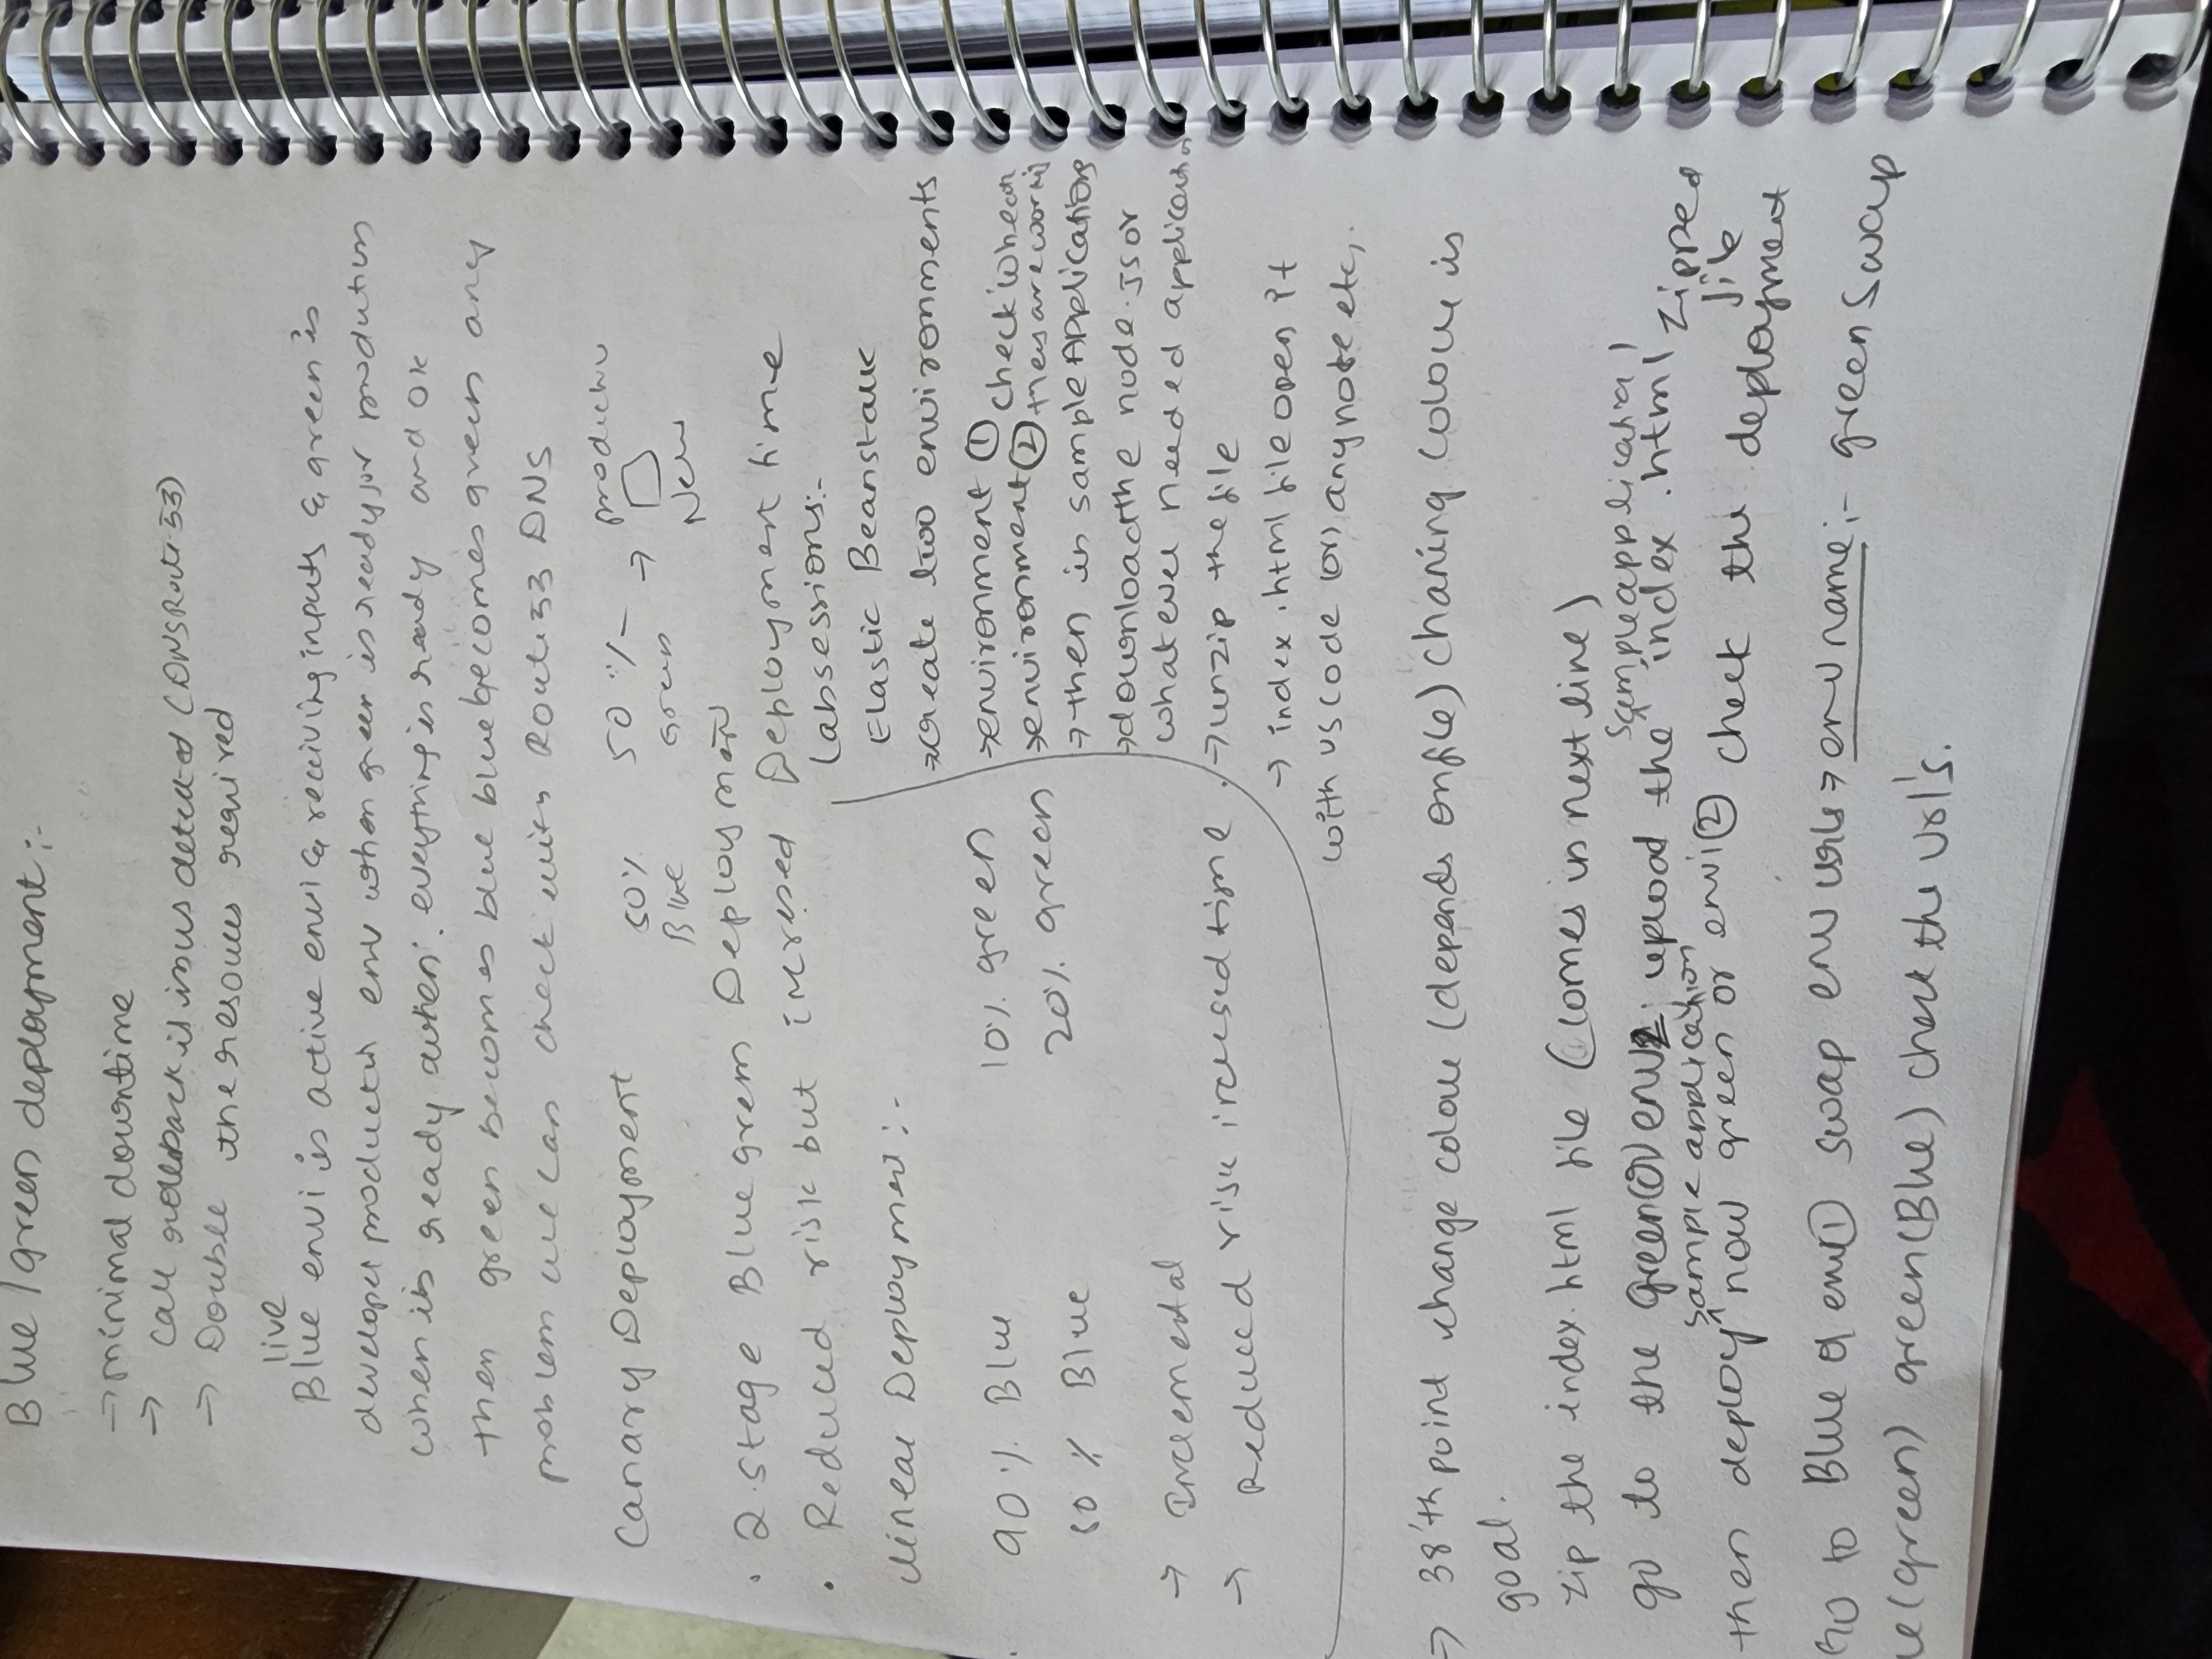 Blue / green deployment :-
→ minimal downtime
→ Call rollback is issus detected (DNS Route 53)
→ Double the resoures required
live
Blue envi is active envi & receiving inputs & green is
developer env when green is ready for prodution
when its ready everything is ready and ok
then green becomes blue blue becomes green any
problem we can check with Route 53 DNS
Canary Deployment 50% Blue 50 % Green → New
• 2 stage Blue green Deployment
• Reduced risk but incresed Deployment time
linear Deployment :-
90 % Blue 10% green
80 % Blue 20% green
→ Incremental
→ Reduced risk incresed time
Labsessions:-
Elastic Beanstalk
→ create two environments
→ environment ① check
→ environment ② they are
→ then in sample Applications
→ download the node.js or
whatever needed application
→ unzip the file
→ index .html file open it
with vscode (or) any note etc,.
→ 38'th point change colour (depends on file) chaning colour is
goal.
zip the index.html file (comes in next line)
go to the green(or) env2 upload the sample application index .html zipped file
then deploy sample application now green or envi② check the deployment
Go to Blue or env① swap env urls → env name :- green swap
(green) green(Blue) check the Url's.